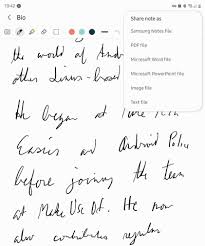 10:42
Bio
Share note as
Samsung Notes file
PDF file
Microsoft Word file
Microsoft PowerPoint file
Image file
Text file
the world of
other Linux-based
He began at Pure
and Android Police
before joining the team
at Make Use Of. He now
also contributes